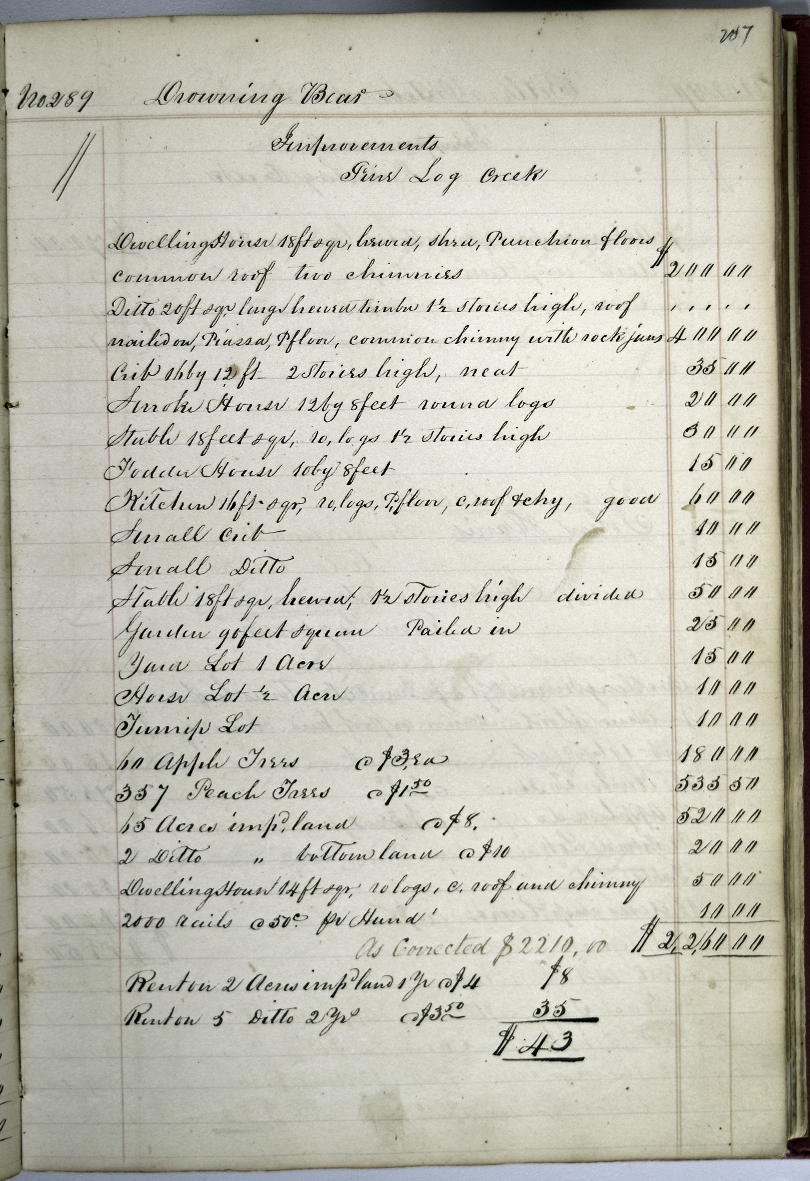 207
No 289 Drowning Bear
Improvements
Pine Log Creek
Dwelling House 18 ft sqr, hewed, shed, Puncheon floors $
common roof two chimnies 2 " " " "
Ditto 20 ft sqr large hewed timber 1½ stories high, roof . . . . .
nailed on, Piazza, P floor, common chimny with rock jams 4 " " " "
Crib 16 by 12 ft 2 Stories high, neat 35 " "
Smoke House 12 by 8 feet round logs 2 " " "
Stable 18 feet sqr, ro, logs 1½ stories high 3 " " "
Fodder House 10 by 8 feet 15 " "
Kitchen 16 ft sqr, ro, logs, P, floor, c, roof & chy, good 6 " " "
Small Crib 4 " " "
Small Ditto 15 " "
Stable 18 ft sqr, hewed, 1½ stories high divided 5 " " "
Garden 90 feet square Pailed in 25 " "
Yard Lot 1 Acre 15 " "
Horse Lot ½ Acre 1 " " "
Turnip Lot 1 " " "
60 Apple Trees @ $3, ea 18 " " "
357 Peach Trees @ $1 50 535 5 "
65 Acres imp'd, land @ $8. 52 " " "
2 Ditto " bottom land @ $10 2 " " "
Dwelling House 14 ft sqr, ro logs, c. roof and chimny 5 " " "
2000 rails @ 50c pr Hund' 1 " " "
As Corrected $2210,00 $ 2,26 " " "
Rent on 2 Acres imp'd land 1 Yr @ $4 $8
Rent on 5 Ditto 2 Yrs @ $3 50 35
$43